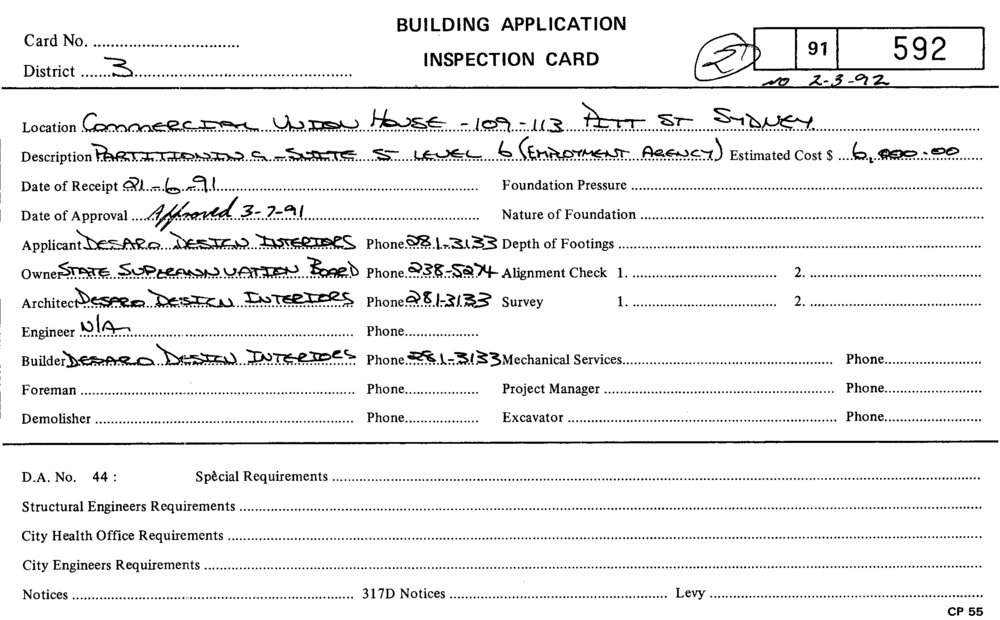 BUILDING APPLICATION
INSPECTION CARD
Card No. ......................................
District ......3......................................................
91 592
NO 2-3-92
Location Commercial Union House - 109-113 Pitt St Sydney
Description Partitioning - Suite 5 Level 6 (Employment Agency) Estimated Cost $ ...6,000.00
Date of Receipt 21-6-91 Foundation Pressure ......................
Date of Approval ...Approved 3-7-91 Nature of Foundation ......................
Applicant Desaro Design Interiors Phone 281-3133 Depth of Footings ......................
Owner State Superannuation Board Phone 238-5274 Alignment Check 1. ...................... 2. ......................
Architect Desaro Design Interiors Phone 281-3133 Survey 1. ...................... 2. ......................
Engineer N/A Phone......................
Builder Desaro Design Interiors Phone 281-3133 Mechanical Services...................... Phone......................
Foreman ...................... Phone...................... Project Manager ...................... Phone......................
Demolisher ...................... Phone...................... Excavator ...................... Phone......................
D.A. No. 44 : Special Requirements ......................
Structural Engineers Requirements ......................
City Health Office Requirements ......................
City Engineers Requirements ......................
Notices ...................... 317D Notices ...................... Levy ......................
CP 55